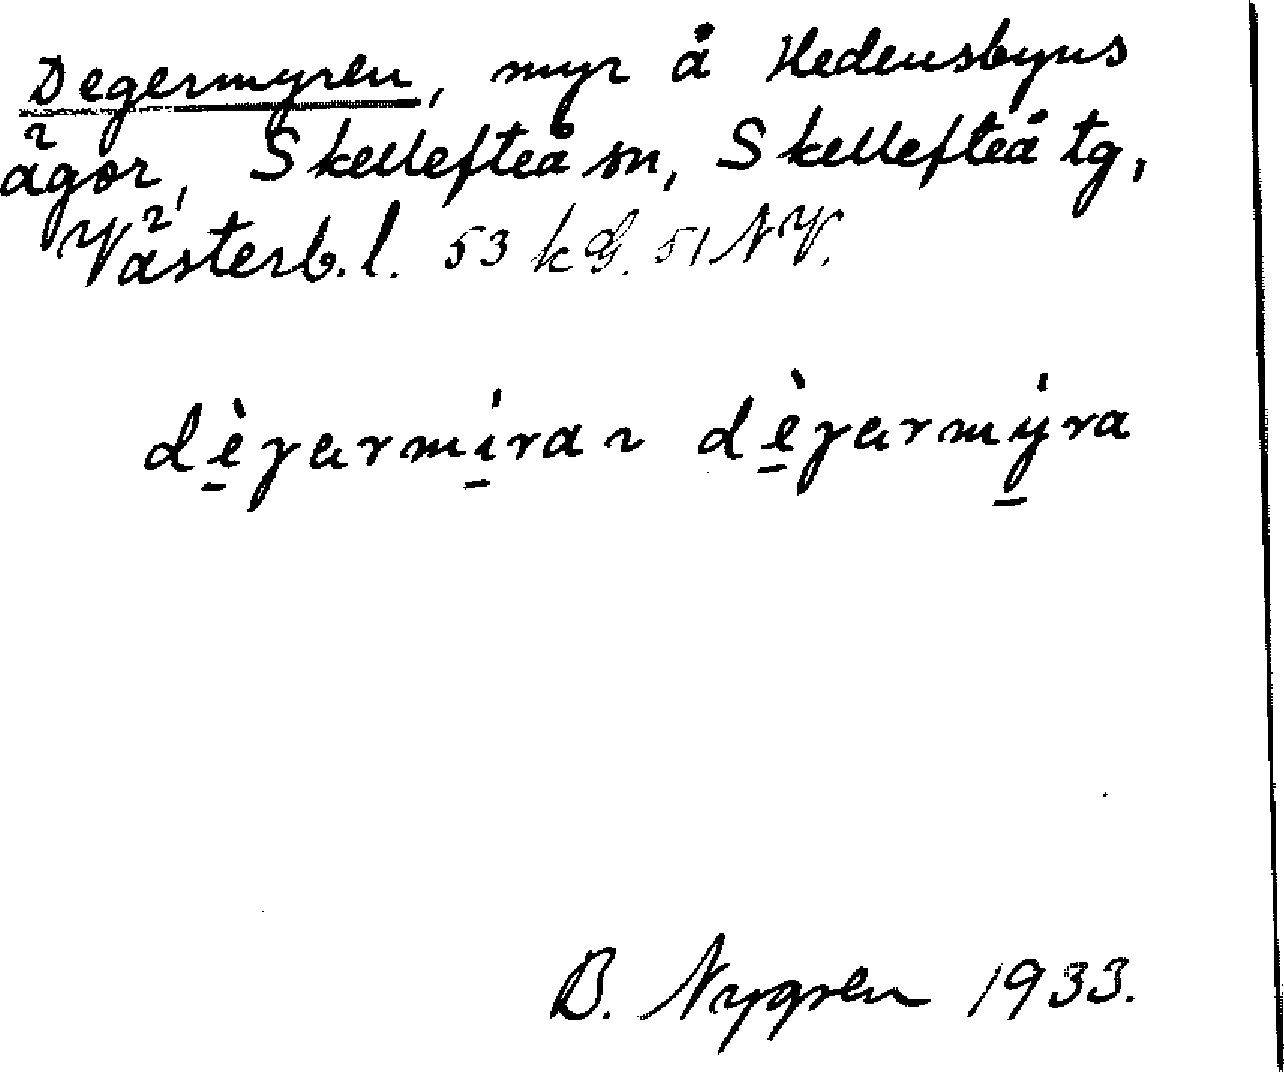 Degermyren, myr å Hedensbyns
ägor, Skellefteå sn, Skellefteå tg,
Västerb. l. 53 k G. 51 NV.
dè̱γarmí̱ra ~ dè̱γarmý̱ra
B. Nygren 1933.